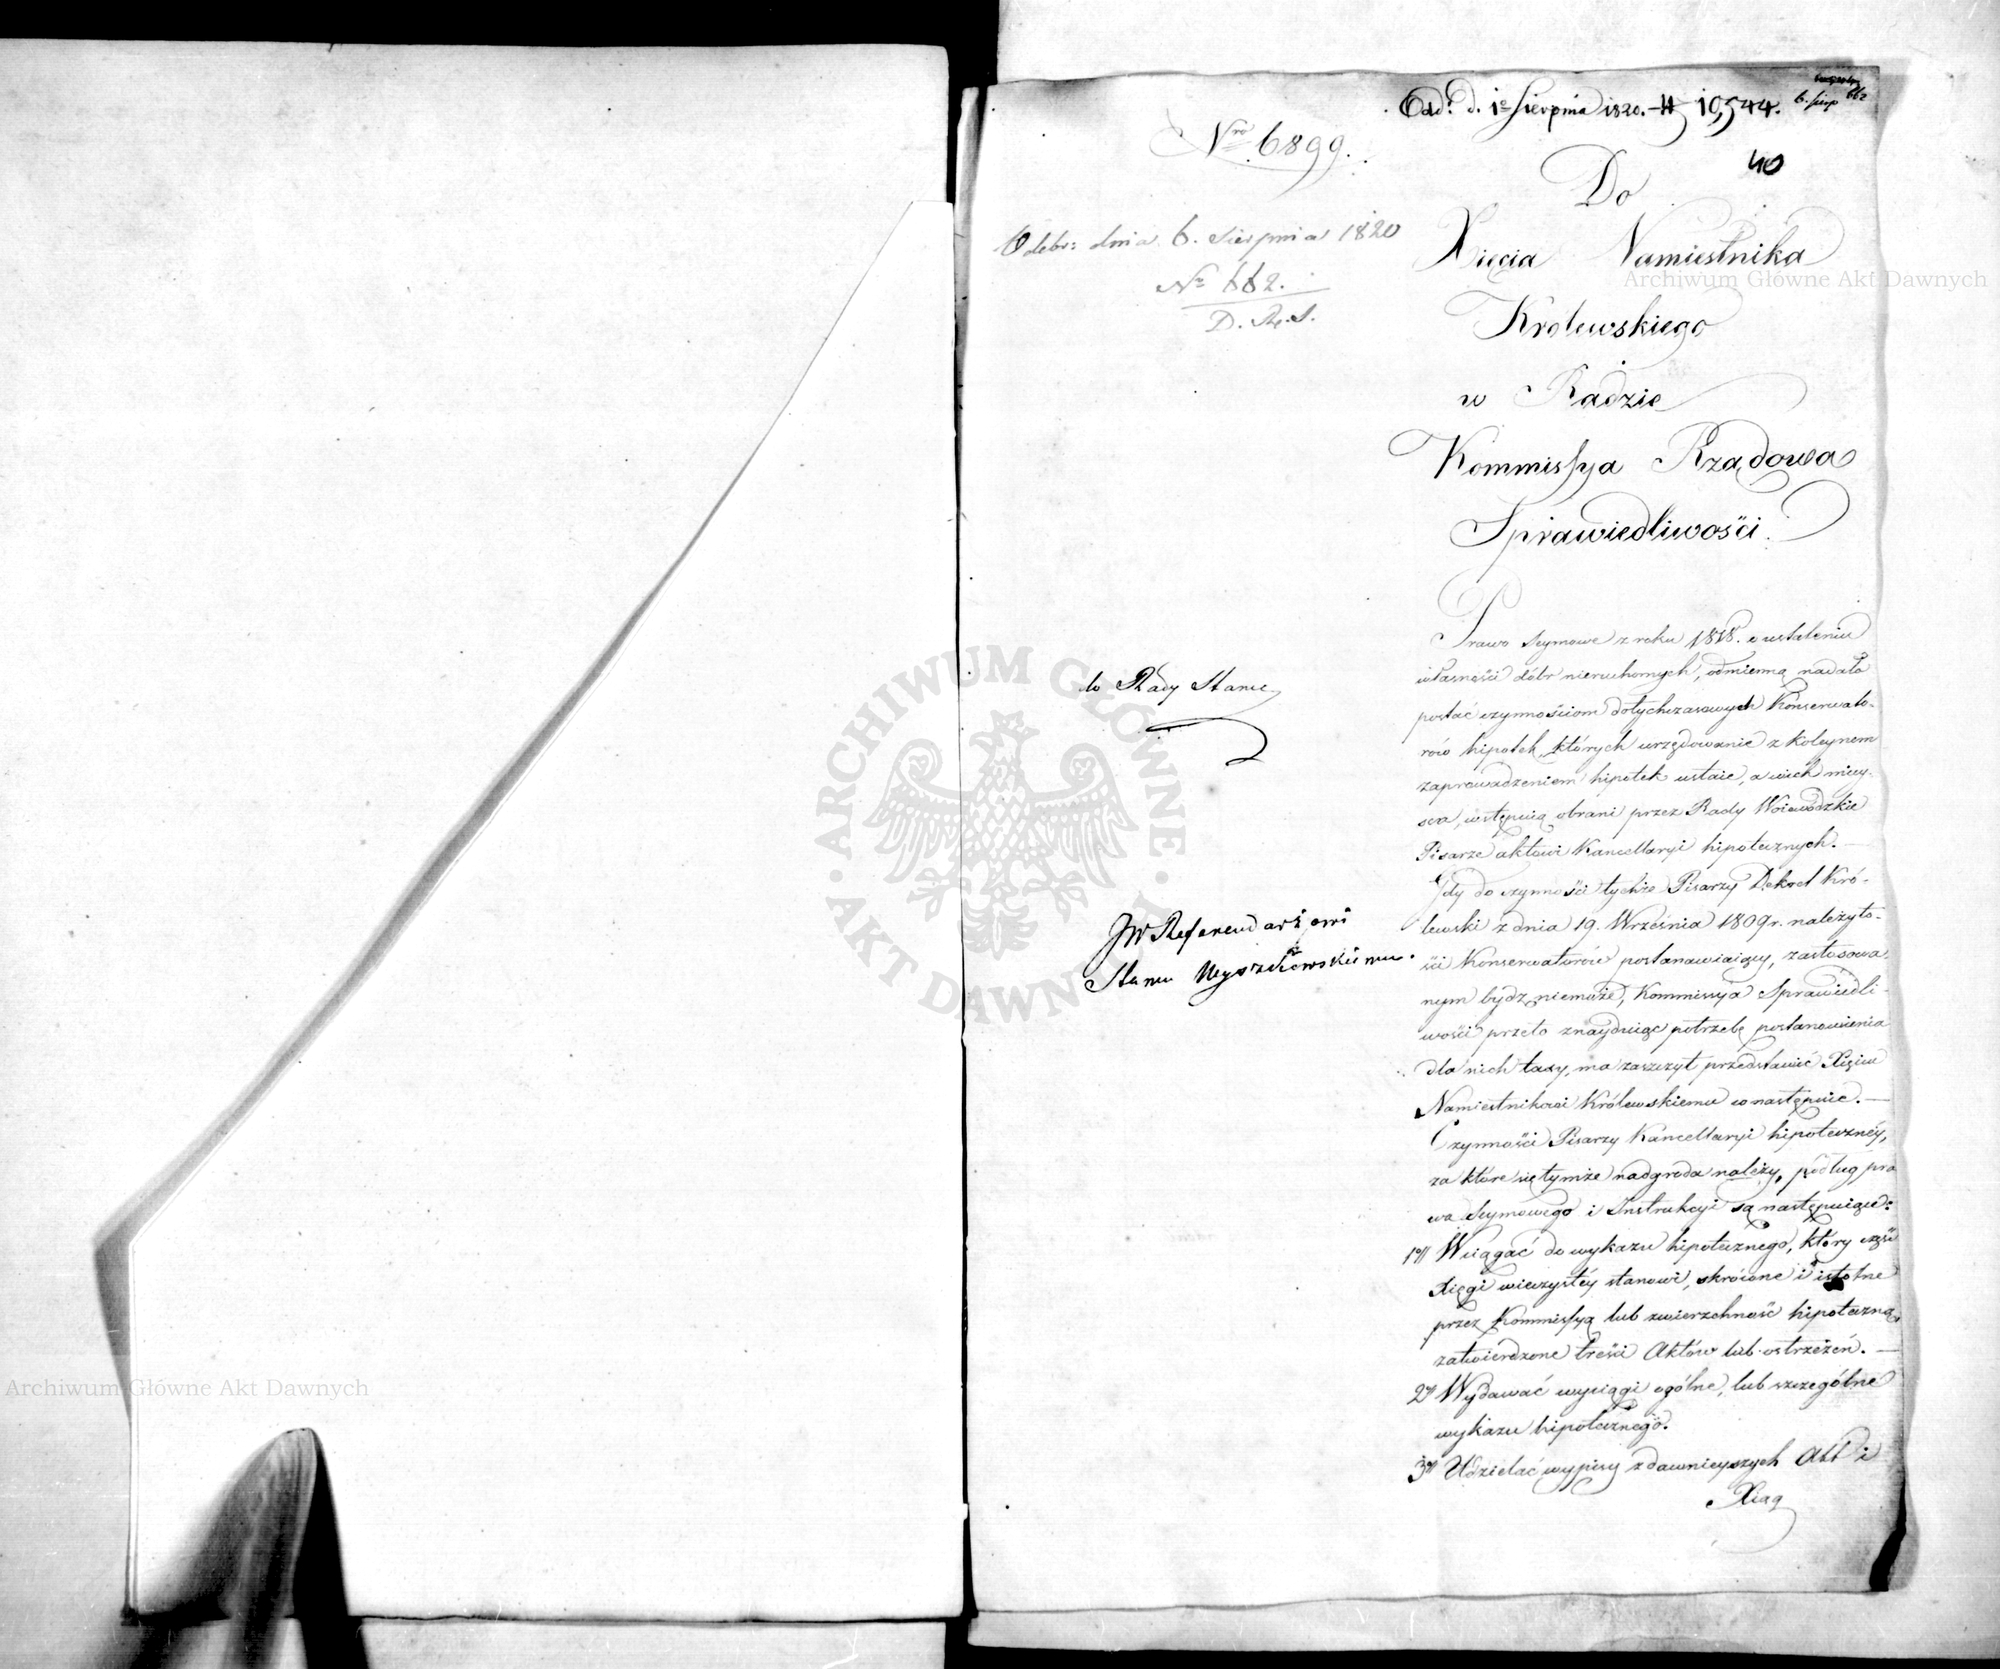 Odd. d. 1o Sierpnia 1820. 10,544.
6. sierp 662
Nro 6899.
40
Odebr: dnia 6. Sierpnia 1820
No 662.
D. R. S.
Do
Xięcia Namiestnika
Królewskiego
w Radzie
Kommissya Rządowa
Sprawiedliwości.
do Rady Stanu
JW Referendarzowi
Stanu
Prawo Seymowe z roku 1818. o ustaleniu
własności dóbr nieruchomych, odmienną nadało
postać czynnościom dotychczasowych Konserwato-
rów hipotek, których urzędowanie z koleynem
zaprowadzeniem hipotek ustaie, a w ich miey-
sca, wstępuią obrani przez Rady Woiewódzkie
Pisarze aktowi Kancellaryi hipotecznych. —
Gdy do czynności tychże Pisarzy Dekret Kró-
lewski z dnia 19. Września 1809 r. należyto-
ści Konserwatorów postanawiaiący, zastosowa-
nym bydz niemoże, Kommissya Sprawiedli-
wości przeto znayduiąc potrzebę postanowienia
dla nich taxy, ma zaszczyt przedstawić Xięciu
Namiestnikowi Królewskiemu co następuie. —
Czynności Pisarzy Kancellaryi hipoteczney,
za które się tymże nadgroda należy, podług pra
wa Seymowego i Instrukcyi są następuiące:
1o Wciągać do wykazu hipotecznego, który część
Xięgi wieczystéy stanowi, skrócone i istotne
przez Kommissyą lub zwierzchność hipoteczną
zatwierdzone treści Aktów lub ostrzeżeń. —
2o Wydawać wyciągi ogólne, lub szczególne
wykazu hipotecznego.
3o Udzielać wypisy z dawnieyszych Akt i
Xiąg
ARCHIWUM GŁÓWNE
AKT DAWNYCH
Archiwum Główne Akt Dawnych
Archiwum Główne Akt Dawnych